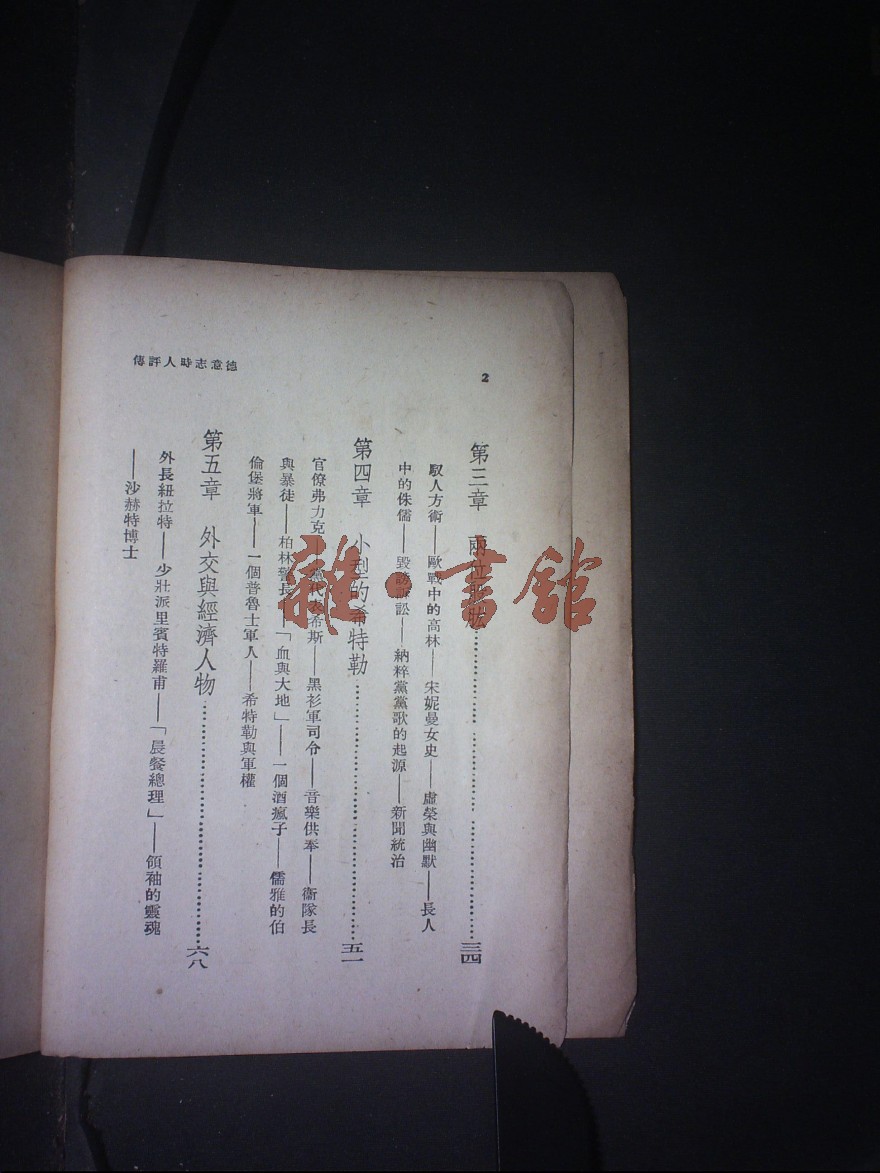 德意志時人評傳
2
第三章 兩位股肱 三四
馭人方術——歐戰中的高林——宋妮曼女史——虛榮與幽默——長人
中的侏儒——毀謗訴訟——納粹黨黨歌的起源——新聞統治
第四章 小型的希特勒 五一
官僚弗力克——黨代表希斯——黑衫軍司令——音樂供奉——衞隊長
與暴徒——柏林警長——「血與大地」——一個酒瘋子——儒雅的伯
倫堡將軍——一個普魯士軍人——希特勒與軍權
第五章 外交與經濟人物 六八
外長紐拉特——少壯派里賓特羅甫——「晨餐總理」——領袖的靈魂
——沙赫特博士
雜·書館